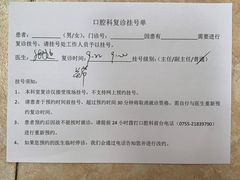 口腔科复诊挂号单
患者：（男/女）、门诊号：因患有需要进行
复诊挂号、请挂号处工作人员予以挂号。
医生：复诊时间：挂号级别：（主任/副主任/普通）
挂号须知：
1、本科室复诊仅接受现场挂号，不支持网上预约挂号。
2、请患者于预约时间前挂号，超过预约时间 30 分钟将取消就诊资格，需自行与医生重新预约复诊时间。
3、患者预约后因故不能按时就诊，请提前 24 小时拨打口腔科前台电话（0755-21839790）
进行重新预约。
4、如复预约的医生临时停诊，我们会通过电话告知您并进行改约。